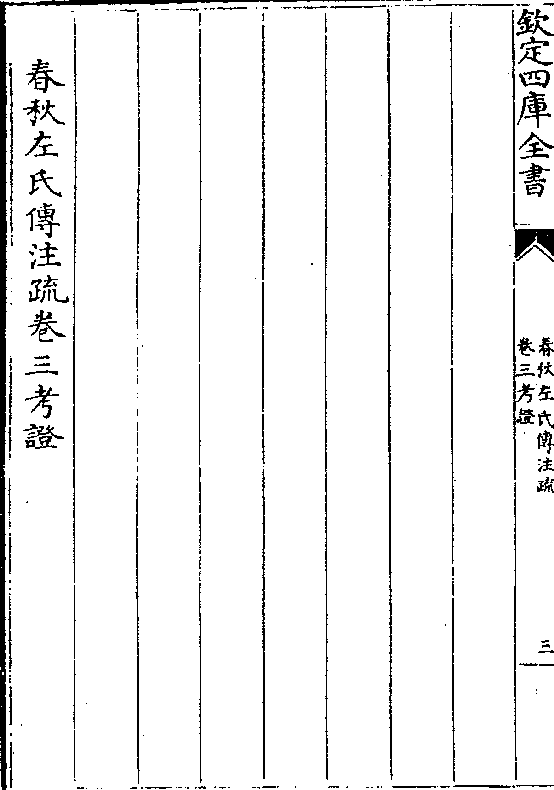 欽定四庫全書
春秋左氏傳注疏
卷三考證
三
春秋左氏傳注疏卷三考證